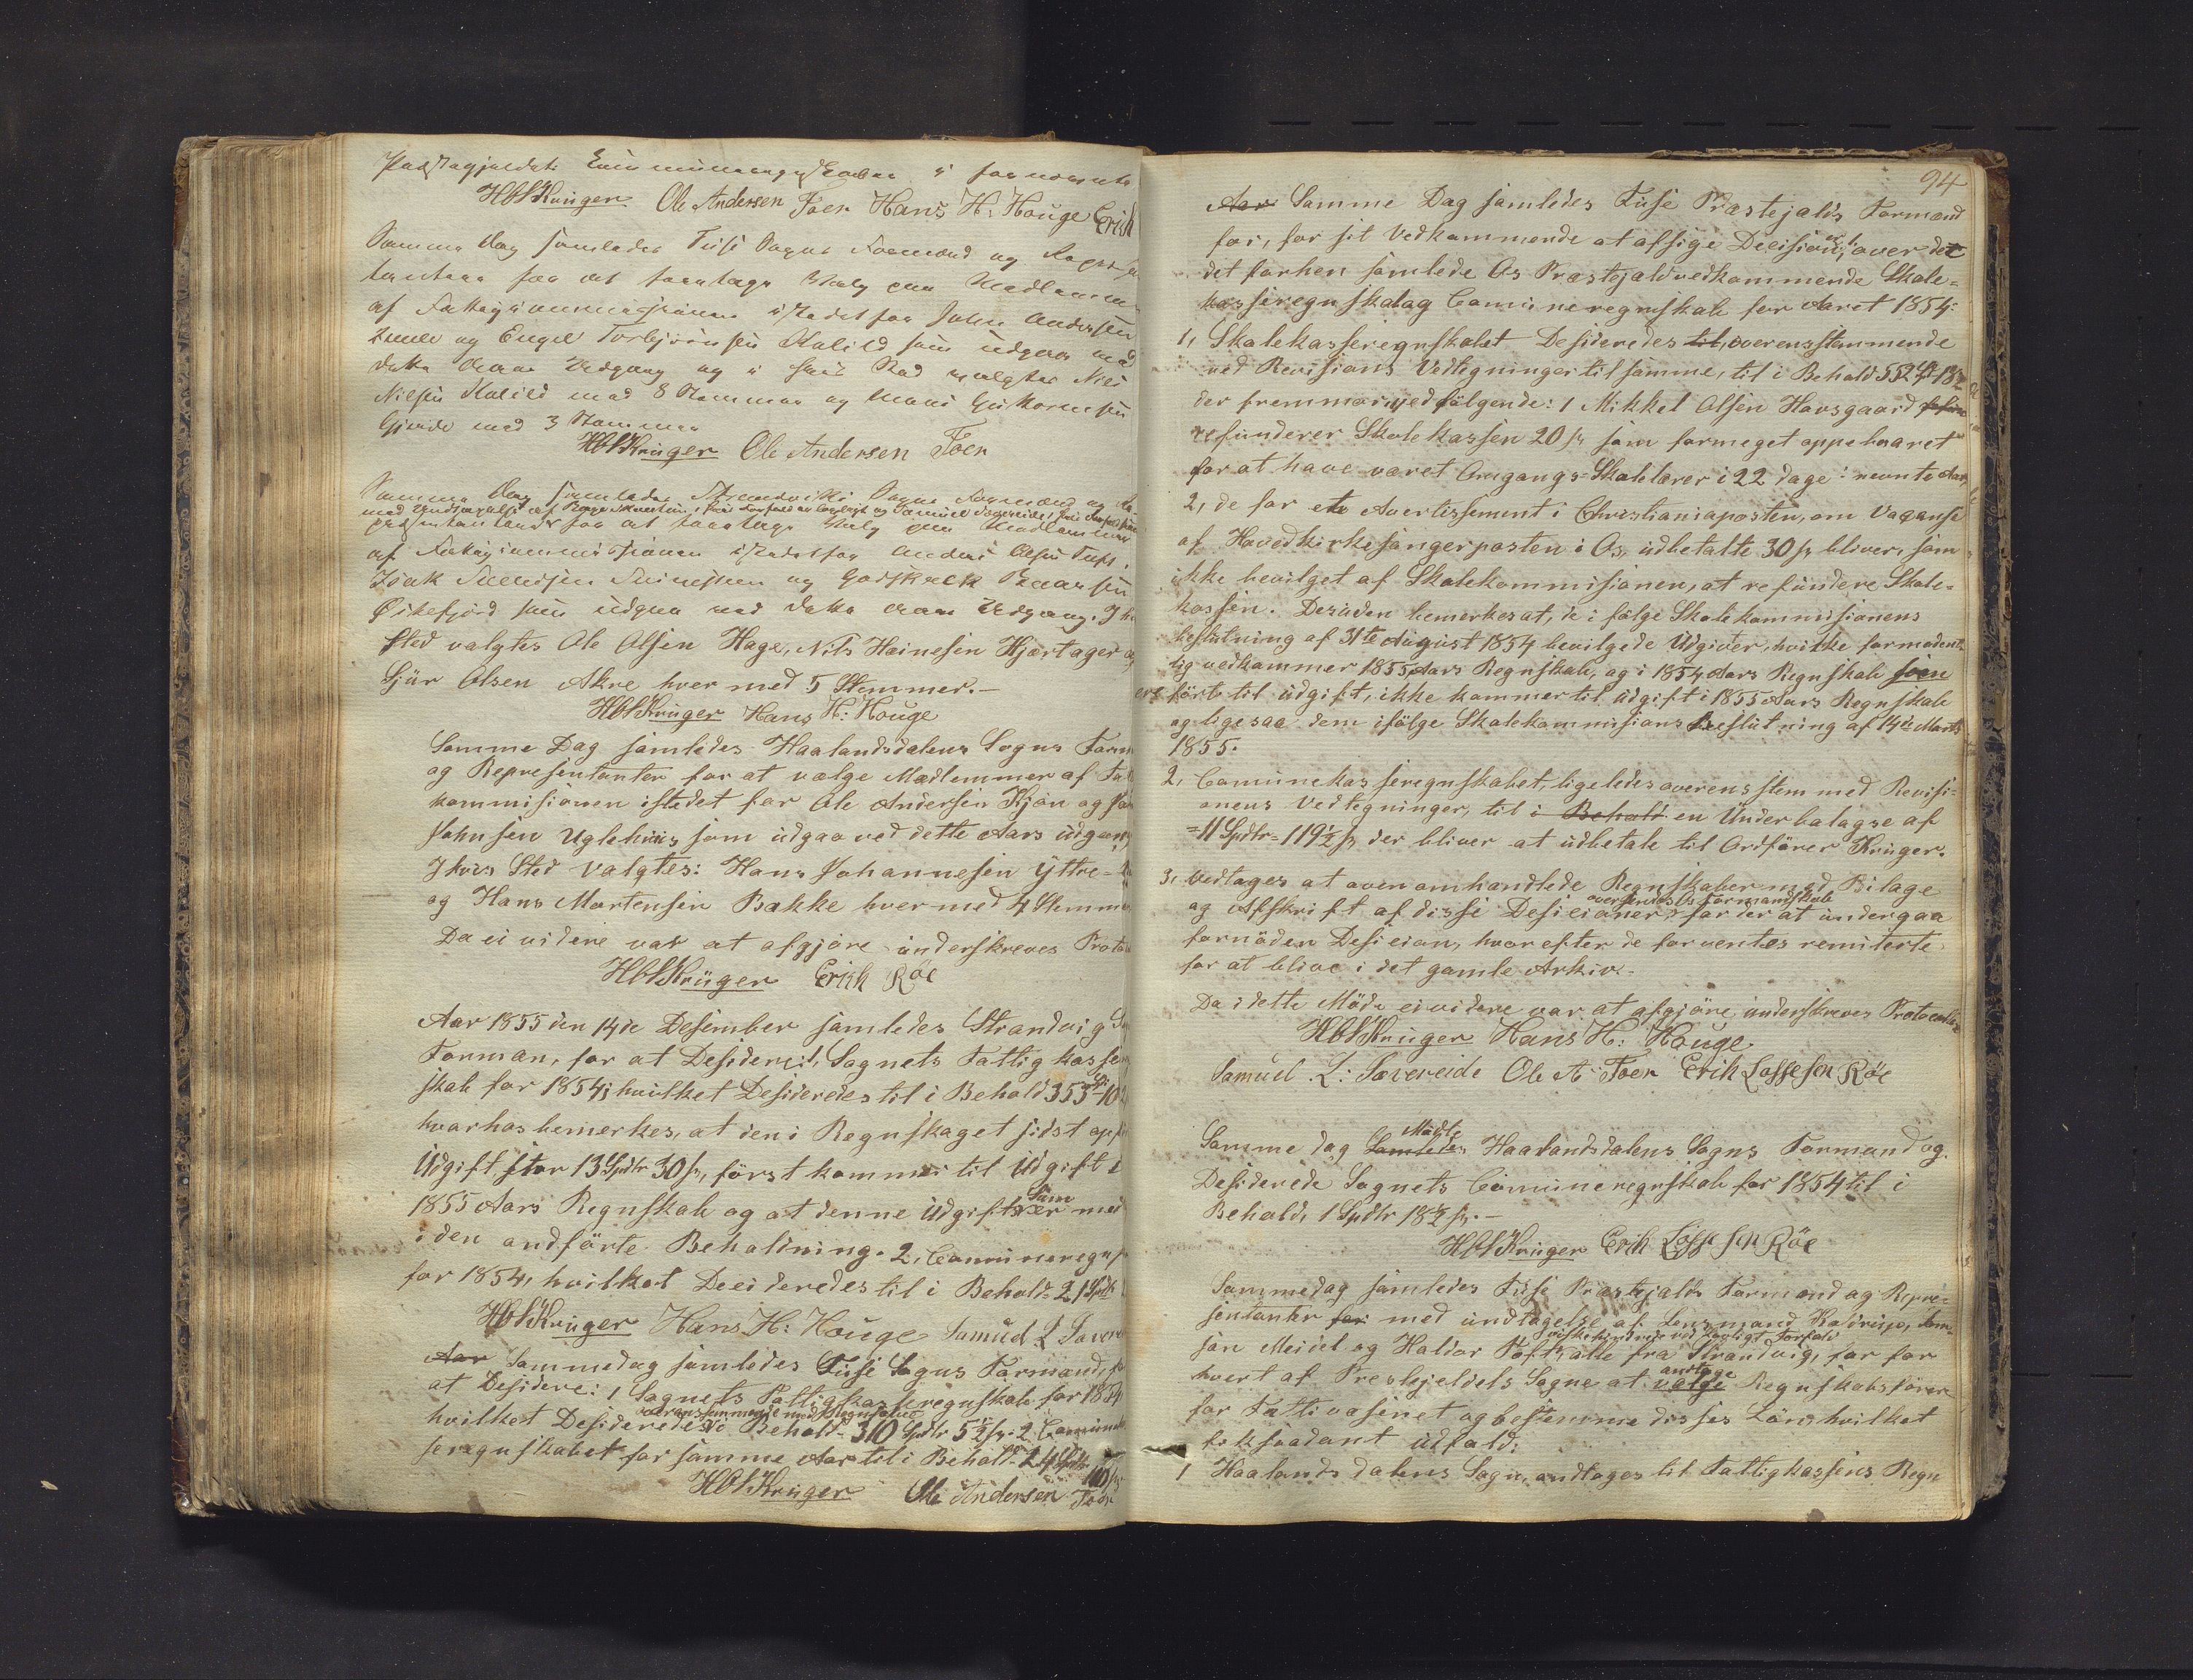 Præstegjeldets Communeregnskaber i saa
HHKrüger Ole Andersen Töen Hans H: Houge Erich
Samme Dag samledes Fuse Sogns Formænd og Repræsen
tantere for at foretage Valg paa Medlemmer
af Fattigkommissionen istedetfor John Andersen
og Engel Torbjörnsen Kalild som udgaar med
dette Aars Udgang og i hvis Sted valgtes Nils
Nilsen Kalild med 8 Stemmer og
Gjerde med 3 Stemmer
HHKrüger Ole Andersen Töen
Samme Dag samledes Strandviks Sogns Formænd og Re-
med Undtagelse af
præsentantere for at foretage Valg paa Medlemmer
af Fattigkommissionen istedetfor Anders Olsen Tuft,
Isak og Godskalk
Öilefjord som udgaar med dette Aars Udgang. I h
sted valgtes Ole Olsen Hage, Nils Heinesen Hjortager og
Sjür Olsen Akre hver med 5 Stemmer.-
HHKrüger Hans H: Houge
Samme Dag samledes Haalandsdalens Sogns Form
og Representanter for at vælge Medlemmer af Fat
kommisionen istedet for Ole Andersen Kjön og
Johnsen Uglehuus som udgaa ved dette Aars udgang
I hvis Sted valgtes: Hans Johannesen Yttre-
og Hans Mortensen Bakke hver med 4 Stemme
Da ei videre var at afgjöre underskreves Proto
HHKrüger Erich Röe
Aar 1855 den 14de Desember samledes Strandvig S
Forman, for at Desidere: 1, Sognets Fattigkasse
skab for 1854; hvilket Desideredes til i Behold 355 Sp 10
hvorhos bemerkes, at den i Regnskaget sidst opf
Udgift stor 13 Spdlr 30 s, först kommer til Udgift i
1855 Aars Regnskab og at denne Udgift Sum er med
i den andförte Beholdning. 2, Communeregns
for 1854, hvilket Deeideredes til i Behold = 21 Spdlr
HHKrüger Hans H: Houge Samuel L Sævere
Aar Sammedag samledes Fuse Sogns Formænd, f
at Desidere: 1 Sognets Fattigkasseregnskab for 1854
overensstemmende med Regnskabet
hvilket Desideredes i Behold = 310 Spdlr 5½ s. 2 Commune
seregnskabet for samme Aar til i Behold = 24 Spdlr
110 s
HHKrüger Ole Andersen Töen
94
Aar Samme Dag samledes Fuse Præstejalds Formænd
for, for sit Vedkommende at afsige Decision, over det
det forhen samlede Os Præstejald vedkommende Skole-
kasseregnskab og Comuneregnskab for Aaret 1854:
1, Skolekasseregnskabet Desideredes til, overensstammende
med Revisions Vedtegninger til samme, til i Behold 552
der fremmoer ved fölgende: 1 Mikkel Olsen Havsgaard
refunderer Skolekassen 20 s som formeget oppebaaret
for at have været Omgangs-Skolelærer i 22 dage i nevnte Aar,
2, de for et Avertissement i Christianiaposten, om Vacanse
af Hovedkirkesangerposten i Os, udbetalte 30 s bliver, som
ikke bevilget af Skolekommisionen, at refundere Skole-
kassen. Desuden bemerkes at, de i fölge Skolekommisionens
beslutning af 31te August 1854 bevilgede Udgivter, hvilke formodent-
lig vedkommer 1855 Aars Regnskab, og i 1854 Aars Regnskab som
ere fört til udgift, ikke kommer til udgift i 1855 Aars Regnskab
og ligesaa dem ifölge Skolekommisions Beslutning af 14de Marts
1855.
2, Comunekasseregnskabet, ligeledes overensstem med Revisi-
onens Vedtegninger, til i Behold en Underbalagse af
=11 Spdlr=119½ s, der bliver at udbetale til Ordförer Krüger.
3, Vedtages at oven omhandlede Regnskaber med Bilage
og Afskrift af disse Desicioner oversendes Os Formandskab for der at undergaa
fornöden Desicion, hvorefter de forventes remiterte
for at blive i det gamle Arkiv.
Da i dette Möde ei videre var at afgjöre, underskreves Protocollen
HHKrüger Hans H: Houge
Samuel L: Sævereide Ole A Töen Erik Lassesen Röe
Samme dag Samledes Mödte Haalandsdalens Sogns Formænd og
Desiderede Sognets Comuneregnskab for 1854 til i
Behold, 1 Spdlr 18½ s.-
HHKrüger Erik Lassesen Röe
Sammedag samledes Fuse Præstejalds Formænd og Repre-
sentanter for med undtagelse af Lensmand
Meidel og Haldor Tofte, alle fra Strandvig, for for
hvert af Prestejeldets Sogne at vælge antage Regnskabsförer
for Fattivæsenet og bestemme disses Lön, hvilket
fik saadant udfald:
1 Haalandsdalens Sogn, andtages til Fattigkassens Regn